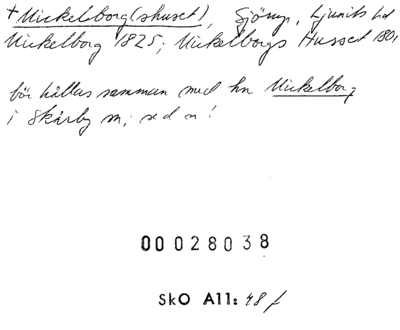 + Mickelborg(shuset), Sjörup, Ljunits hd
Mickelborg 1825; Mickelborgs Husset 1801
bör hållas samman med hn Mickelborg
i Skårby sn; se d o!
00028038
SkO All: 48 f